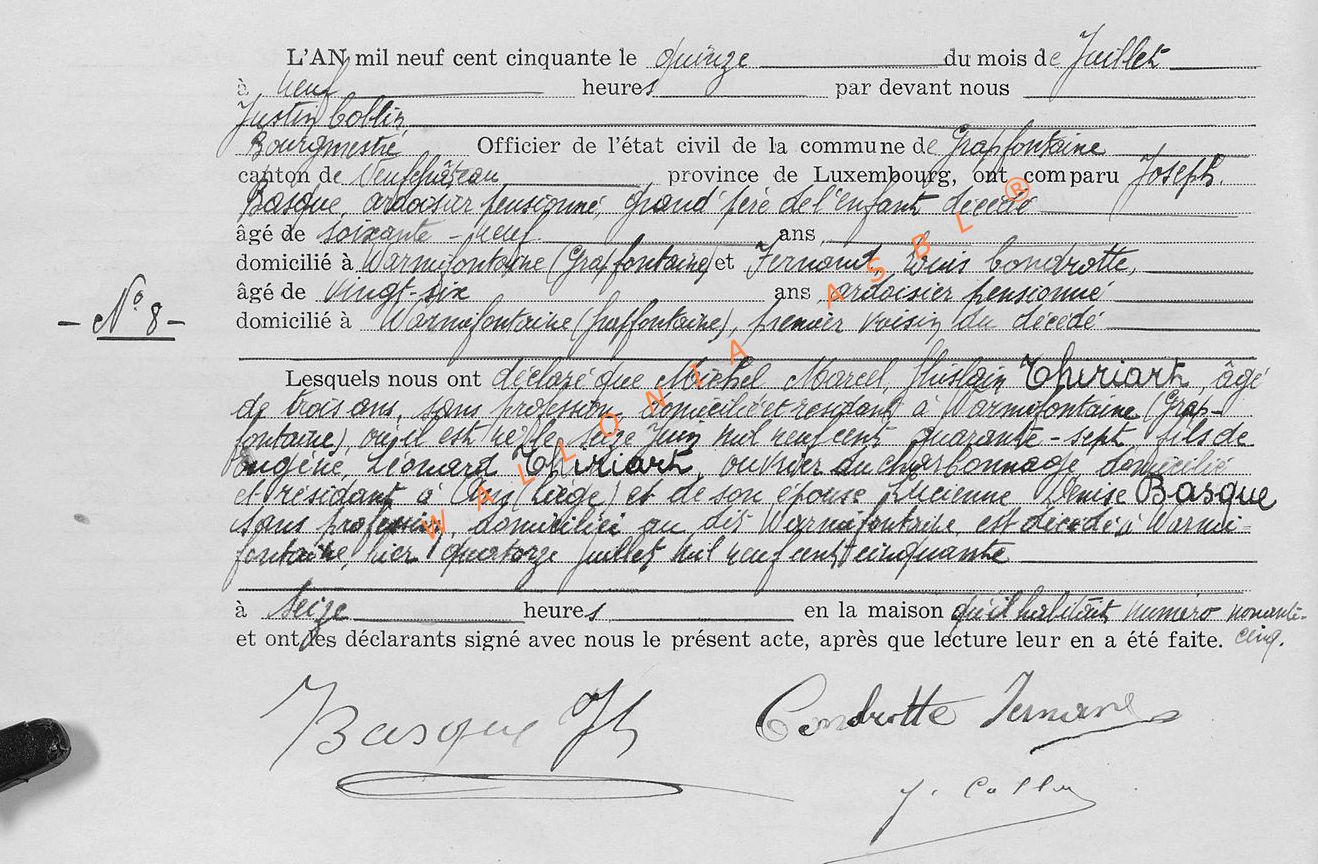 L'AN mil neuf cent cinquante le quinze du mois de Juillet
à neuf heures par devant nous
Justin Collin
Bourgmestre Officier de l'état civil de la commune de Grapfontaine
canton de Neufchâteau province de Luxembourg, ont comparu Joseph
Basque, ardoisier pensionné, grand'père de l'enfant décédé
âgé de soixante-neuf ans,
domicilié à Warmifontaine (Grapfontaine) et Fernand, Louis Condrotte,
âgé de vingt-six ans ardoisier pensionné
- N° 8 -
domicilié à Warmifontaine (Graffontaine), premier voisin du décédé
Lesquels nous ont déclaré que Michel Marcel Ghislain Thiriart, âgé
de trois ans, sans profession, domicilié et résidant à Warmifontaine (Grap-
fontaine), où il est né le seize Juin mil neuf cent quarante-sept fils de
Eugène, Léonard Thiriart, ouvrier au charbonnage domicilié
et résidant à Ans (Liège) et de son épouse Lucienne Denise Basque
sans profession, domiciliée au dit Warmifontaine, est décédé à Warmi-
fontaine, hier quatorze juillet mil neuf cent cinquante
à seize heures en la maison qu'il habitait numéro nonante-
cinq.
et ont les déclarants signé avec nous le présent acte, après que lecture leur en a été faite.
Basque Jh Condrotte Fernand
J. Collin
WALLONIA ASBL ®